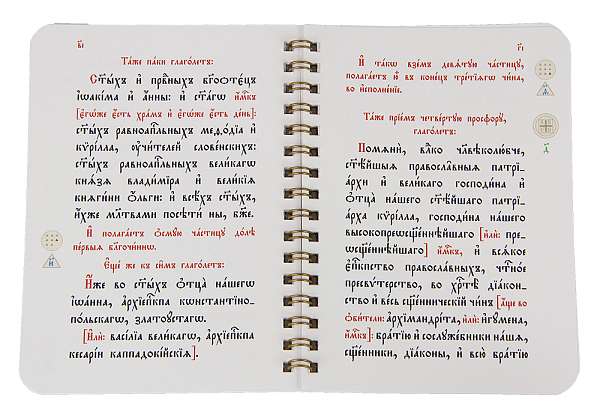 в҃і
Та́же па́ки глаго́летъ:
Ст҃ы́хъ и҆ пра́вныхъ бг҃оѻте́цъ
і҆ѡаки́ма и҆ а҆́нны: и҆ ст҃а́гѡ и҆́м҃къ
[є҆гѡ́же є҆́сть хра́мъ и҆ є҆гѡ́же є҆́сть де́нь]:
ст҃ы́хъ равноап҃льныхъ меѳо́діа и҆
кѷрі́лла, ᲂу҆чи́телей слове́нскихъ:
ст҃ы́хъ равноап҃льныхъ вели́кагѡ
кнѧ́зѧ влади́міра и҆ вели́кіѧ
кнѧги́ни ѻ҆́льги: и҆ всѣ́хъ ст҃ы́хъ,
и҆́хже мл҃твами посѣти́ ны, бж҃е.
И҆ полага́етъ ѻ҆сму́ю части́цу до́лѣ
пе́рвыѧ бл҃гочи́ннѡ.
Є҆ще́ же къ си̑мъ глаго́летъ:
И҆̀же во ст҃ы́хъ ѻ҆тц҃а̀ на́шегѡ
і҆ѡа́нна, а҆рхїеп҃кпа кѡнстанті́но-
по́льскагѡ, златоу́стагѡ.
[И҆лѝ: васі́лїа вели́кагѡ, а҆рхїеп҃кпа
кесарі́и каппадокі́йскїѧ].
г҃і
И҆ та́кѡ взе́мъ девѧ́тую части́цу,
полага́етъ ю҆̀ въ коне́цъ тре́тїѧгѡ чи́на,
во и҆сполне́нїе.
Та́же прїе́мъ четве́ртую просфору̀,
глаго́летъ:
Помѧнѝ, вл҃ко чл҃вѣколю́бче,
ст҃ѣ́йшыѧ правосла̑вныѧ патрі-
а́рхи и҆ вели́каго господи́на и҆
ѻ҆тц҃а̀ на́шего ст҃ѣ́йшаго патрі-
а́рха кѷрі́лла, господи́на на́шего
высокопреѡсщ҃е́ннѣйшаго [и҆лѝ: пре-
ѡсщ҃е́ннѣйшаго] и҆́м҃къ, и҆ всѧ́кое
є҆п҃кпство правосла́вныхъ, чтⷭ҇но́е
пресвѵ́терство, во хрⷭ҇тѣ̀ дїа́кон-
ство и҆ ве́сь сщ҃е́нническїй чи́нъ [а҆́ще во
ѻ҆би́тели: а҆рхїмандрі́та, и҆лѝ: и҆гу́мена,
и҆́м҃къ]: бра́тїю и҆ сослуже́бники на́шѧ,
сщ҃е́нники, дїа́коны, и҆ всю̀ бра́тїю